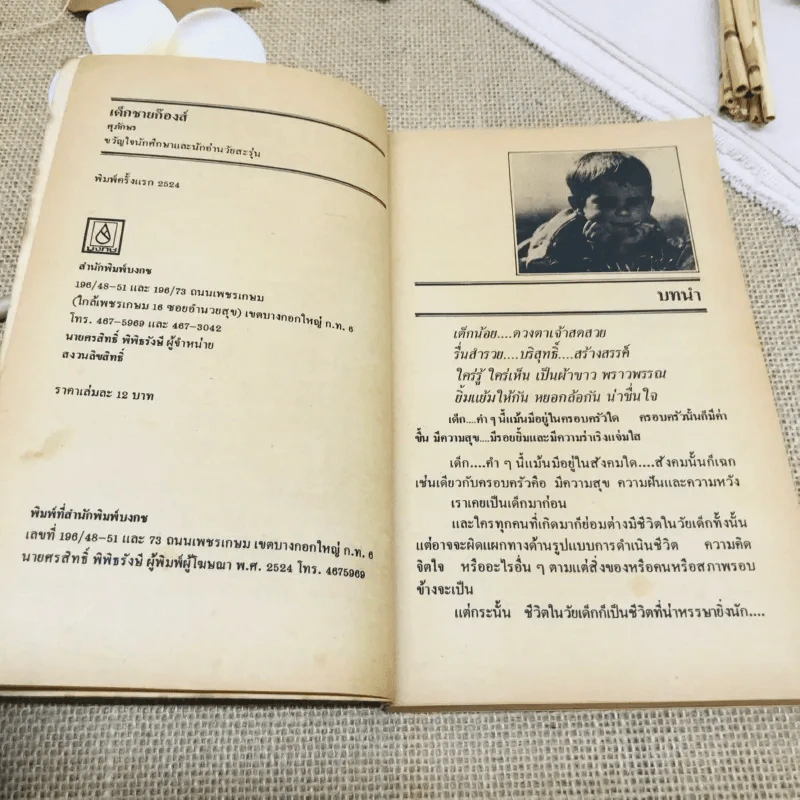 เด็กชายก๊องส์
ศุภักษร
ขวัญใจนักศึกษาและนักอ่านวัยสะรุ่น
พิมพ์ครั้งแรก 2524
บงกช
สำนักพิมพ์บงกช
196/48-51 และ 196/73 ถนนเพชรเกษม
(ใกล้เพชรเกษม 16 ซอยอำนวยสุข) เขตบางกอกใหญ่ ก.ท. 6
โทร. 467-5969 และ 467-3042
นายศรสิทธิ์ พิพิธรังษี ผู้จำหน่าย
สงวนลิขสิทธิ์
ราคาเล่มละ 12 บาท
พิมพ์ที่สำนักพิมพ์บงกช
เลขที่ 196/48-51 และ 73 ถนนเพชรเกษม เขตบางกอกใหญ่ ก.ท. 6
นายศรสิทธิ์ พิพิธรังษี ผู้พิมพ์ผู้โฆษณา พ.ศ. 2524 โทร. 4675969
บทนำ
เด็กน้อย....ดวงตาเจ้าสดสวย
รื่นสำรวย....บริสุทธิ์....สร้างสรรค์
ใคร่รู้ ใคร่เห็น เป็นผ้าขาว พราวพรรณ
ยิ้มแย้มให้กัน หยอกล้อกัน น่าชื่นใจ
เด็ก....คำ ๆ นี้แม้นมีอยู่ในครอบครัวใด ครอบครัวนั้นก็มีค่า
ขึ้น มีความสุข....มีรอยยิ้มและมีความร่าเริงแจ่มใส
เด็ก....คำ ๆ นี้แม้นมีอยู่ในสังคมใด....สังคมนั้นก็เฉก
เช่นเดียวกับครอบครัวคือ มีความสุข ความฝันและความหวัง
เราเคยเป็นเด็กมาก่อน
และใครทุกคนที่เกิดมาก็ย่อมต่างมีชีวิตในวัยเด็กทั้งนั้น
แต่อาจจะผิดแผกทางด้านรูปแบบการดำเนินชีวิต ความคิด
จิตใจ หรืออะไรอื่น ๆ ตามแต่สิ่งของหรือคนหรือสภาพรอบ
ข้างจะเป็น
แต่กระนั้น ชีวิตในวัยเด็กก็เป็นชีวิตที่น่าหรรษายิ่งนัก....